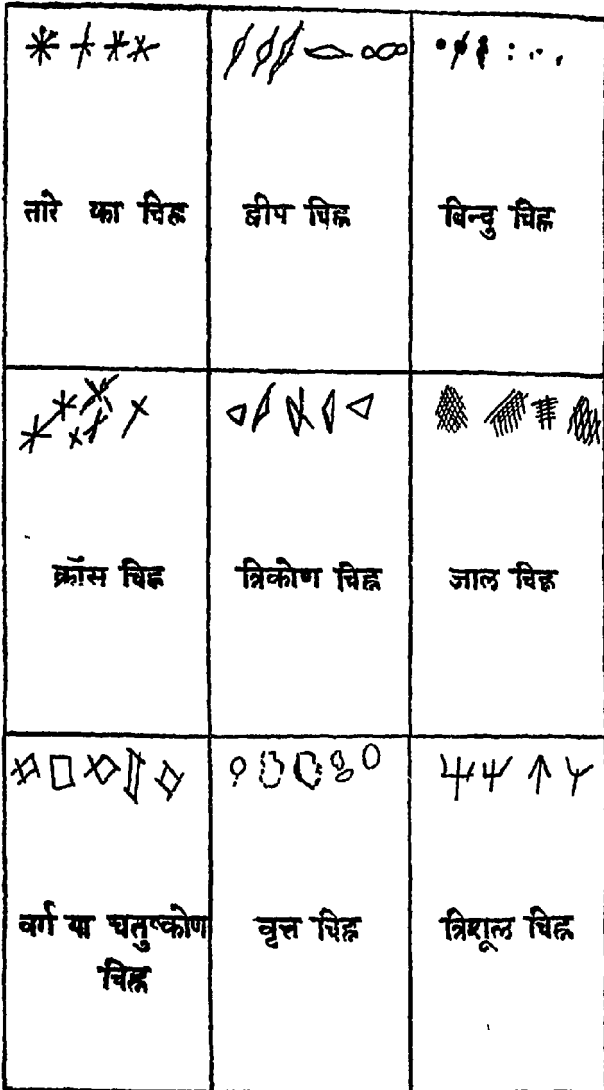 तारे का चिह्न
द्वीप चिह्न
विन्दु चिह्न
क्रॉस चिह्न
त्रिकोण चिह्न
जाल चिह्न
वर्ग या चतुष्कोण
चिह्न
वृत्त चिह्न
त्रिशूल चिह्न